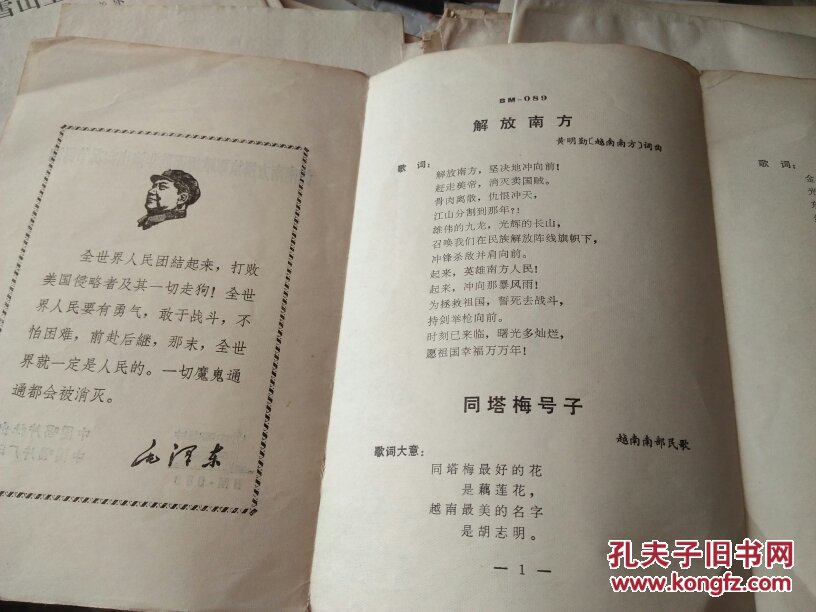 雪山上
全世界人民团结起来，打败
美国侵略者及其一切走狗！全世
界人民要有勇气，敢于战斗，不
怕困难，前赴后继，那末，全世
界就一定是人民的。一切魔鬼通
通都会被消灭。
毛泽东
BM-089
解放南方
黄明勤〔越南南方〕词曲
歌词：
解放南方，坚决地冲向前！
赶走美帝，消灭卖国贼。
骨肉离散，仇恨冲天，
江山分割到那年？！
雄伟的九龙，光辉的长山，
召唤我们在民族解放阵线旗帜下，
冲锋杀敌并肩向前。
起来，英雄南方人民！
起来，冲向那暴风雨！
为拯救祖国，誓死去战斗，
持剑举枪向前。
时刻已来临，曙光多灿烂，
愿祖国幸福万万年！
同塔梅号子
越南南部民歌
歌词大意：
同塔梅最好的花
是藕莲花，
越南最美的名字
是胡志明。
— 1 —
歌词：
金
光
孔夫子旧书网
www.kongfz.com